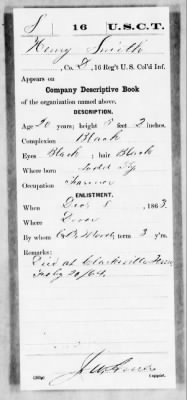 S | 16 | U.S.C.T.
Henry Smith
, Co. D, 16 Reg't U.S. Col'd Inf.
Appears on
Company Descriptive Book
of the organization named above.
DESCRIPTION.
Age 20 years; height 5 feet 2 inches.
Complexion Black
Eyes Black; hair Black
Where born Todd Ky
Occupation Farmer
ENLISTMENT.
When Dec 8, 1863.
Where
By whom term 3 y'rs.
Remarks:
Died at Clarksville Tenn
Feby 20/64.
Copyist.